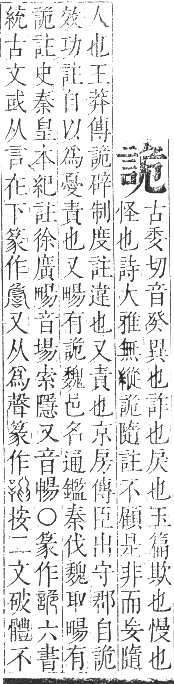 詭
古委切音癸異也詐也戾也玉篇欺也慢也
怪也詩大雅無縱詭隨註不顧是非而妄隨
人也王莽傳詭辟制度註違也又責也京房傳臣出守郡自詭
效功註自以爲憂責也又暢有詭魏邑名通鑑秦伐魏取暢有
詭註史秦皇本紀註徐廣暢音場索隱又音暢〇篆作詭六書
統古文或从言在下篆作又从爲聲篆作按二文破體不